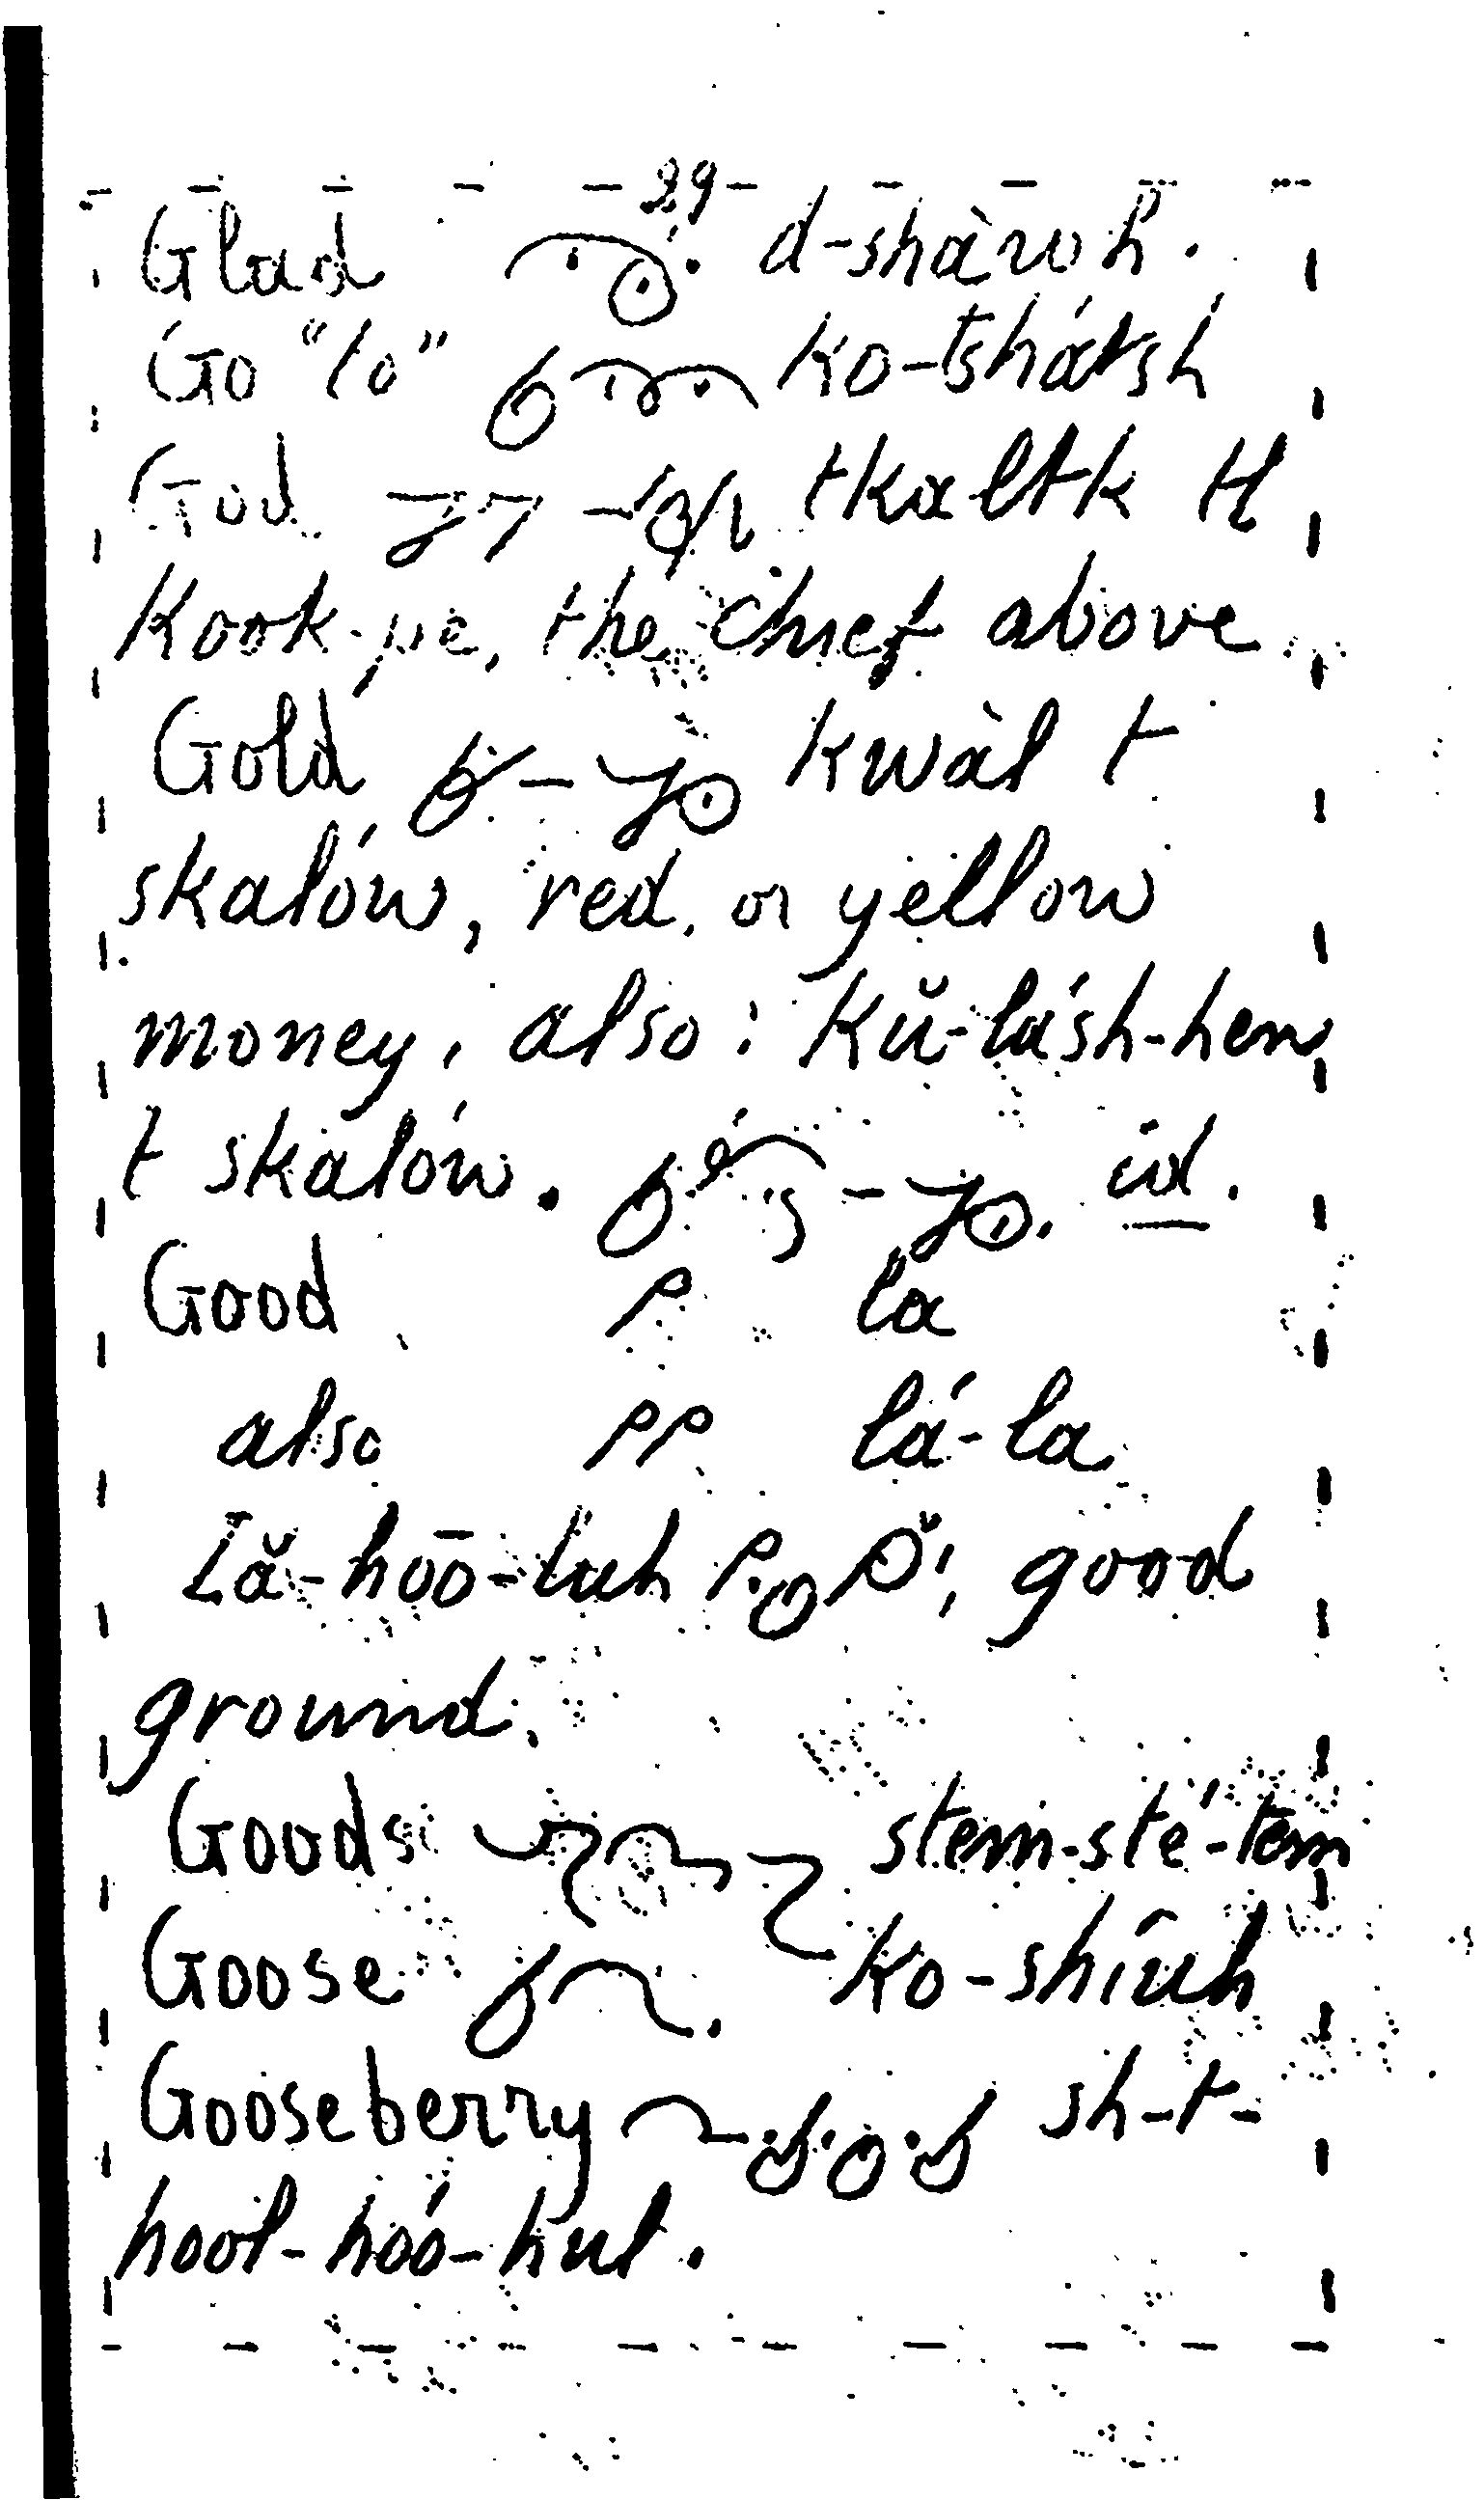 39
Glad d-shàwh.
Go "to" ko-tshátsh
God tkaltk tl
Kook-pe, the chief above
Gold kwàl t
skalów, red, or yellow
money, also: Kŭ-lásh-hen
t skalów. id.
Good la
also lá-la
Lă-hōō-luh good
ground.
Goods stem-sté-tem
Goose ko-shíuh
Gooseberry sh-t-
hool-hóo-hul.